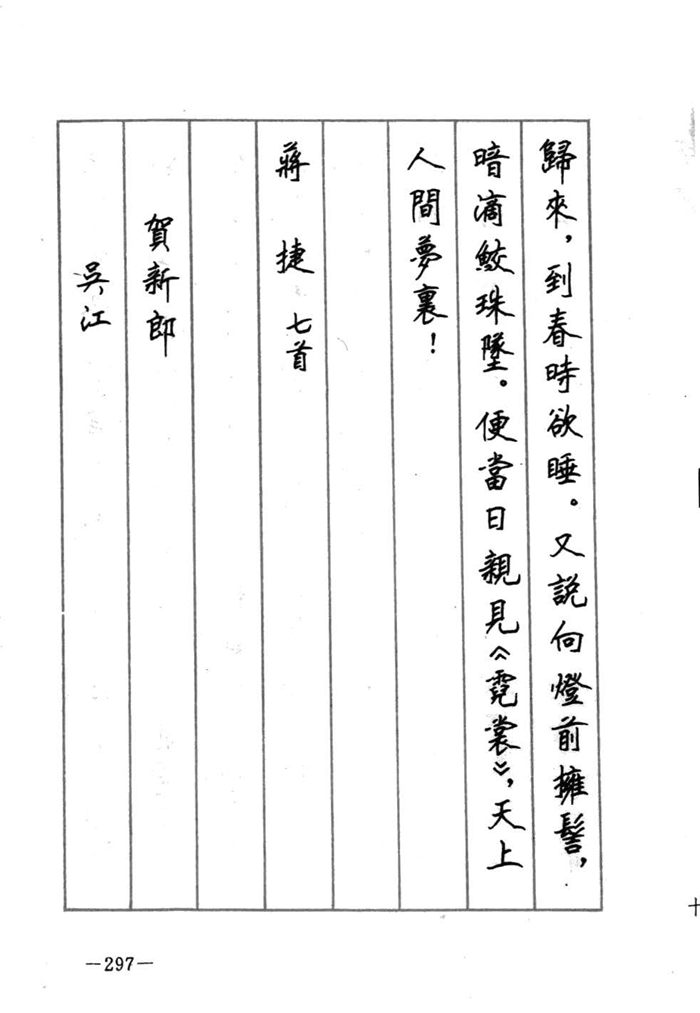 歸來，到春時欲睡。又説向燈前擁髻，
暗滴鮫珠墜。便當日親見《霓裳》，天上
人間夢裏！
蔣捷 七首
賀新郎
吳江
—297—